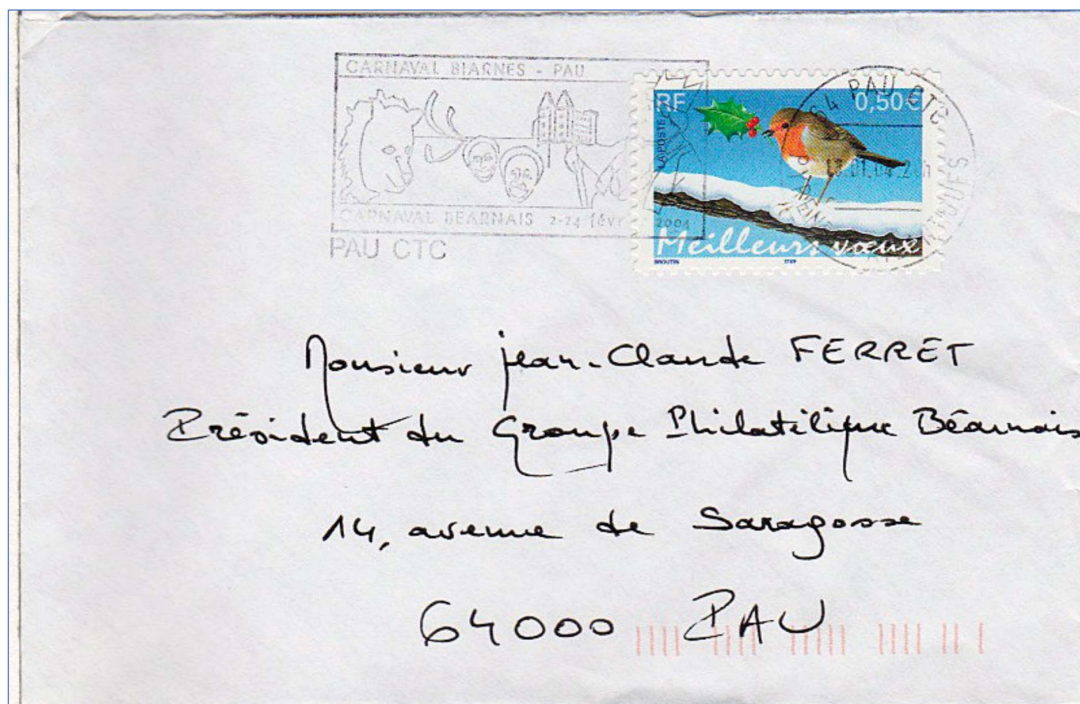 CARNAVAL BIARNES - PAU
CARNAVAL BEARNAIS 2-24 févr 2004
PAU CTC
RF
0,50€
LA POSTE
64 PAU CTC
.01.04
Meilleurs vœux
BROUTIN
ITVF
Monsieur jean-Claude FERRET
Président du Groupe Philatélique Béarnais
14, avenue de Saragosse
64000 PAU